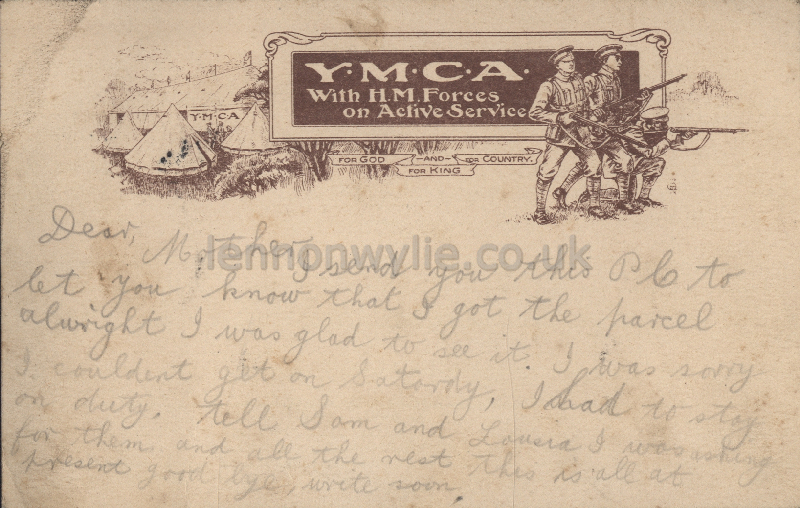 Y·M·C·A·
With H.M. Forces
on Active Service
Y·M·C·A
FOR GOD —AND— FOR COUNTRY.
FOR KING
lennonwylie.co.uk
Dear, Mother
I send you this PC to
let you know that I got the parcel
alwright I was glad to see it. I was sorry
I couldent get on Satardy, I had to stay
on duty. tell Sam and Lousia I was asking
for them and all the rest this is all at
present good bye, write soon,